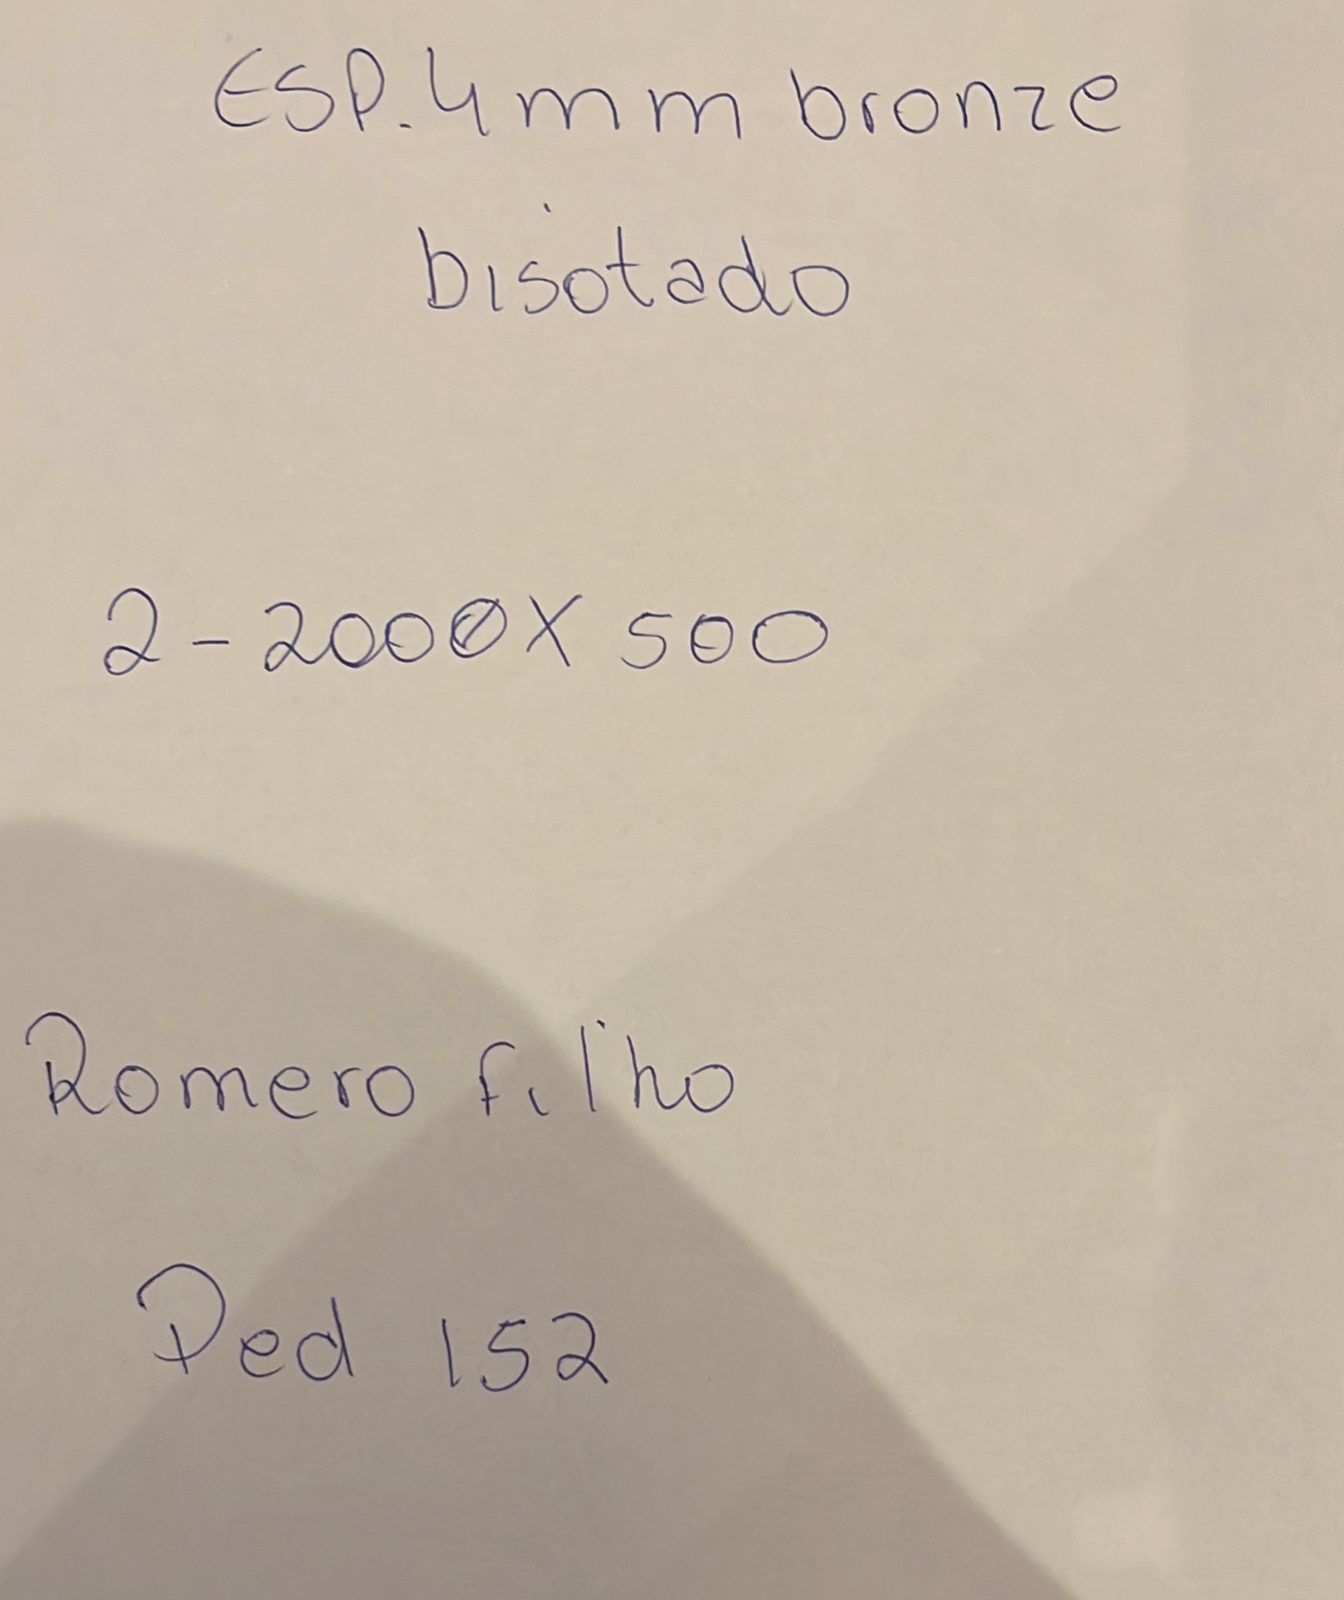 ESP. 4mm bronze
bisotado
2 - 2000 X 500
Romero filho
Ped 152